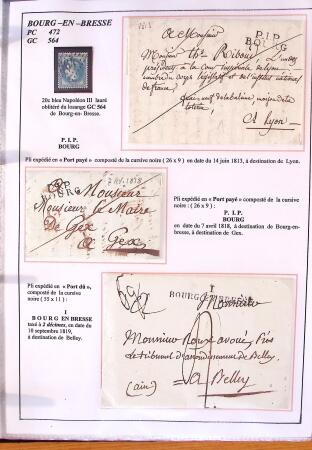 BOURG-EN-BRESSE
PC 472
GC 564
20c bleu Napoléon III lauré
oblitéré du losange GC 564
de Bourg-en-Bresse.
P. I. P.
BOURG
1813
P.I.P
BOURG
A Monsieur
Monsieur Th. Riboud l'un des
présidents à la cour impériale de Lyon
membre du corps législatif
de france
A Lyon
Pli expédié en « Port payé » composé de la cursive noire ( 26 x 9 ) en date du 14 juin 1813, à destination de Lyon.
7 avr. 1818
P.P
BOURG
A Monsieur
Monsieur le Maire
De Gex
A Gex
Pli expédié en « Port payé » composé de la cursive
noire : ( 26 x 9 )
P. I. P.
BOURG
en date du 7 avril 1818, de Bourg-en-
bresse, à destination de Gex.
Pli expédié en « Port dû »,
composé de la cursive
noire ( 55 x 11 ) :
I
BOURG EN BRESSE
taxé à 2 décimes, en date du
10 septembre 1819,
à destination de Belley.
I
BOURG EN BRESSE
A Monsieur
Monsieur Roux avoué près
le tribunal d'arrondissement de Belley
(ain)
A Belley